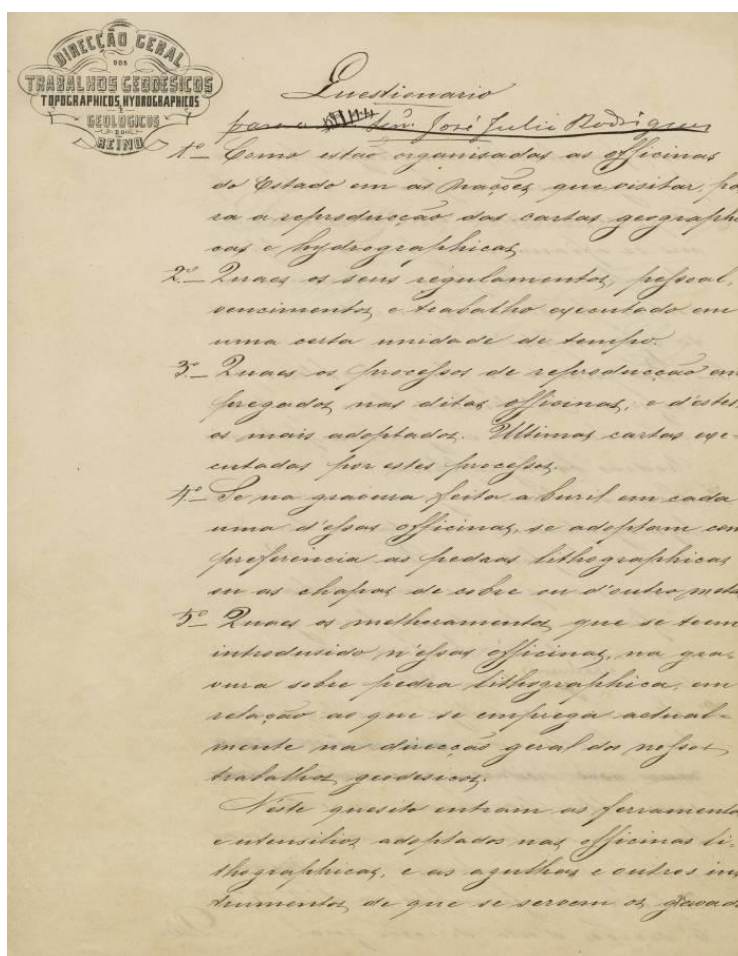 DIRECÇÃO GERAL
DOS
TRABALHOS GEODESICOS
TOPOGRAPHICOS, HYDROGRAPHICOS
E
GEOLOGICOS
DO
REINO
Questionario
para o Snr. José Julio Rodrigues
1.º Como estão organisadas as officinas
do Estado em as Nações que visitar, pa
ra a reproducção das cartas geographi
cas e hydrographicas.
2.º Quaes os seus regulamentos, pessoal,
vencimentos, e trabalho executado em
uma certa unidade de tempo.
3.º Quaes os processos de reproducção em
pregados nas ditas officinas, e d'estes,
os mais adoptados. Ultimas cartas exe-
cutadas por estes processos.
4.º Se na gravura feita a buril em cada
uma d'essas officinas, se adoptam com
preferencia as pedras lithographicas
ou as chapas de cobre ou d'outro meta
5.º Quaes os melhoramentos, que se teem
introdusido n'essas officinas, na gra-
vura sobre pedra lithographica, em
relação ao que se emprega actual-
mente na direcção geral dos nossos
trabalhos geodesicos.
N'este quesito entram as ferramenta
e utensilios adoptados nas officinas li-
thographicas, e as agulhas e outros ins
trumentos, de que se servem os gravad